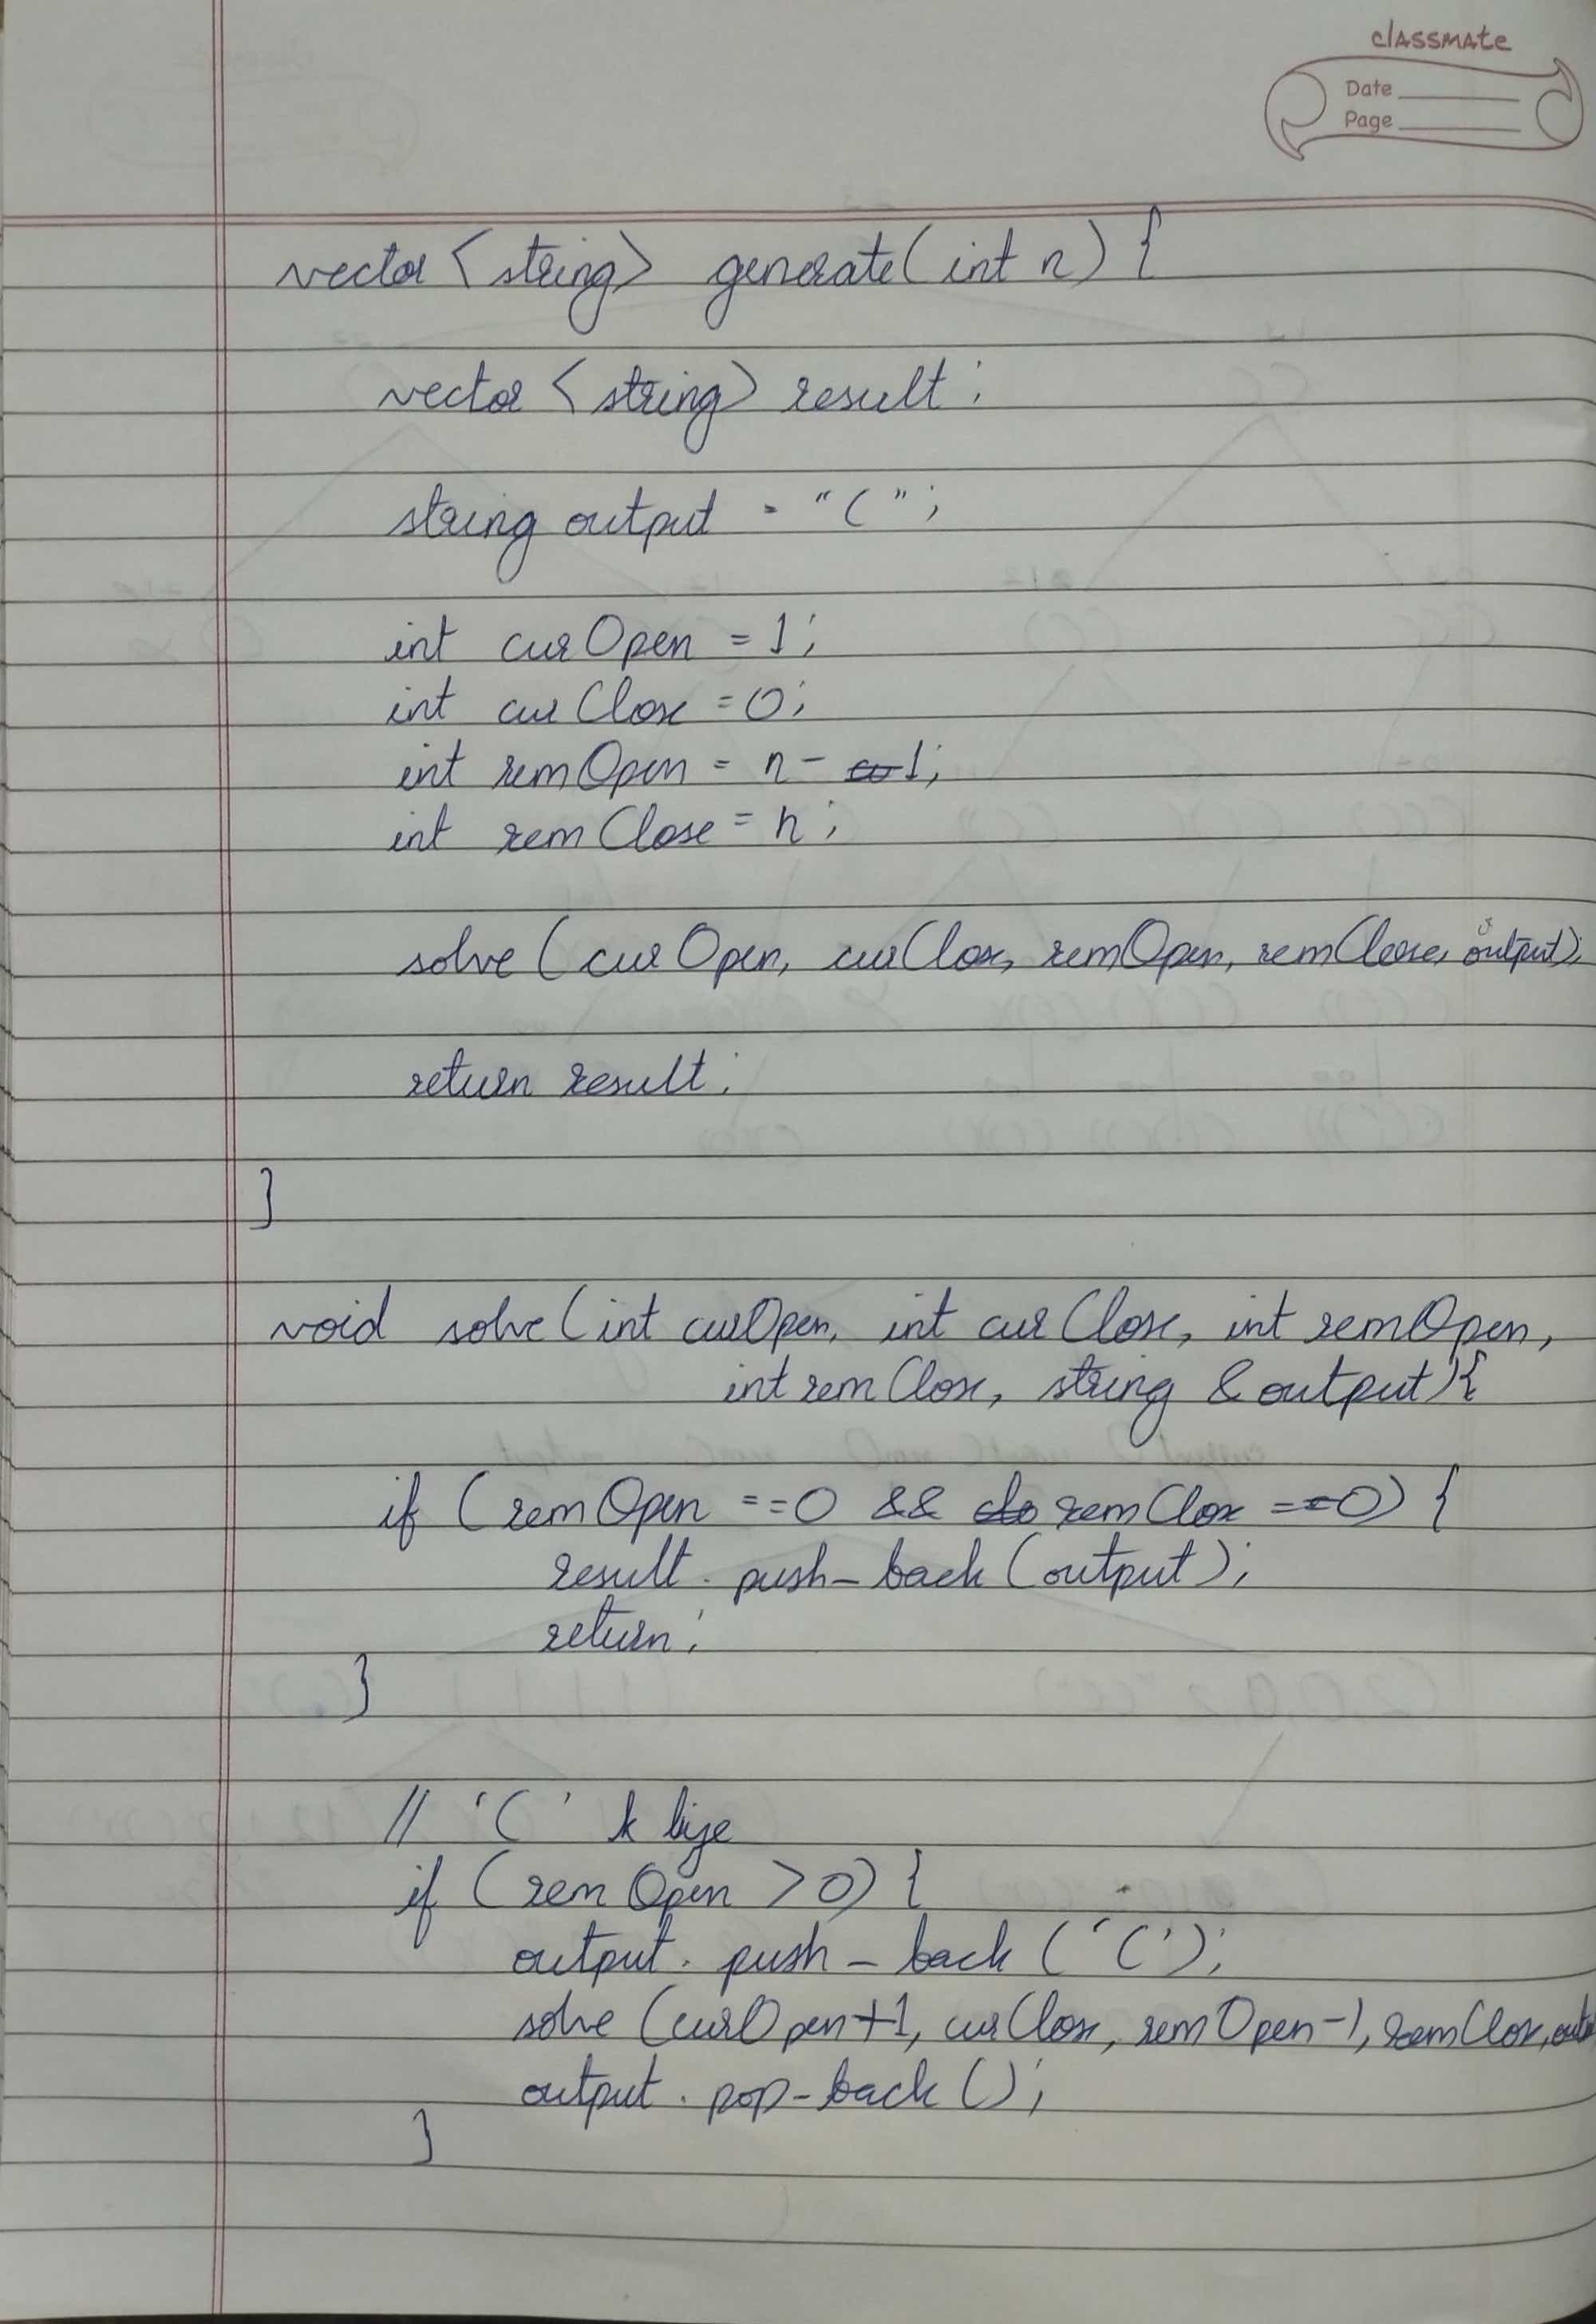 classmate
Date
Page
vector <string> generate(int n) {
vector <string> result;
string output = "(";
int curOpen = 1;
int curClose = 0;
int remOpen = n - 1;
int remClose = n;
solve (curOpen, curClose, remOpen, remClose, output);
return result;
}
void solve (int curOpen, int curClose, int remOpen,
int remClose, string &output){
if (remOpen ==0 && remClose ==0) {
result.push_back(output);
return;
}
// '(' k liye
if (remOpen >0) {
output.push_back('(');
solve (curOpen+1, curClose, remOpen-1, remClose,
output.pop_back();
}